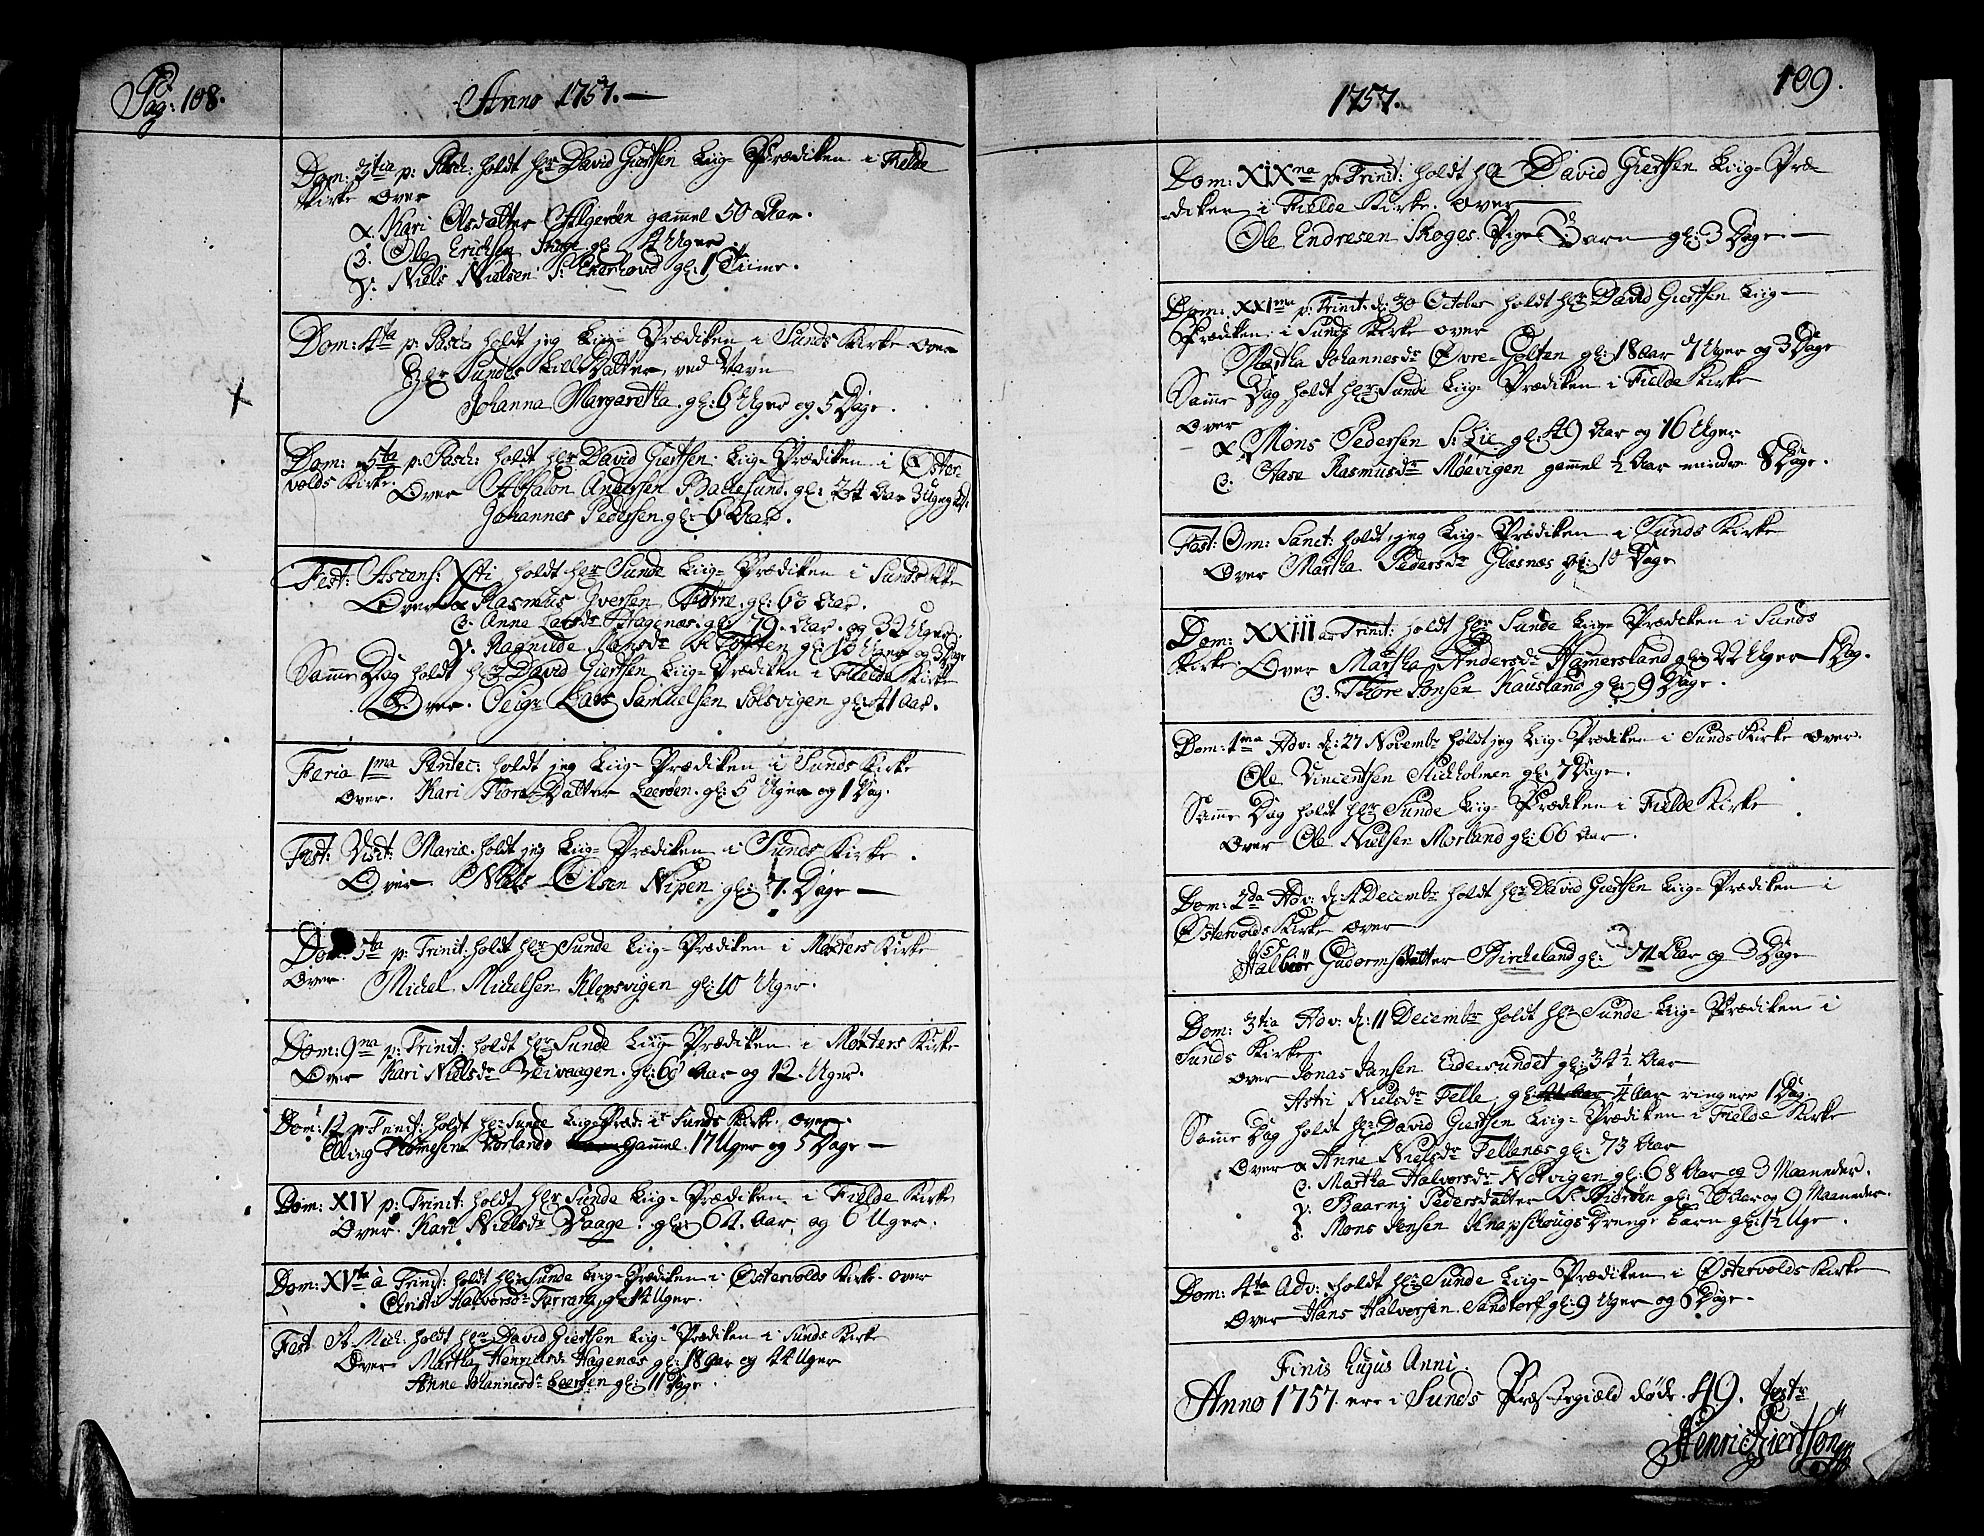 Pag: 108.
Anno 1757.—
Dom: 3tia p: Pasch: holdt hr David Giertsen Liig- Prædiken i Fielde
Kirke over
α. Kari Olsdatter Algerøen gammel 50 Aar.
β. Ole Erichsen gl: 4 Uger
γ: Niels Nielsen S: gl: 1 Tiime.
Dom: 4ta p: Pasch holdt jeg Liig- Prædiken i Sunds Kirke over
Hr Sundes Lille Datter, ved Navn
Johanna Margaretha. gl: 6 Uger og 5 Dage.
Dom: 5ta p: Pasch: holdt hr David Giertsen Liig- Prædiken i Øster-
volds Kirke.
Over Absalon Andersen Ballesund. gl: 34 Aar 3 Ug
Johannes Pedersen gl: 6 Aar.
Fest: Ascens: Xsti holdt hr Sunde Liig- Prædiken i Sunds Kke
Over α Rasmus Iversen Tørre. gl: 63 Aar.
β. Anne Larsdr Hagenæs. gl: 79 Aar. og 32 Uger.
γ. Ragnilde Monsdr Golten gl: 18 Uger og 3 Dage
Samme Dag holdt hr David Giertsen Liig- Prædiken i Fielde Kirke
Over. Seigr Lars Samuelsen Solsvigen gl: 41 Aar.
Feria 1ma Pentec: holdt jeg Liig- Prædiken i Sunds Kirke
Over. Kari Thores Datter Leerøen. gl: 5 Uger og 1 Dag.
Fest: Visit: Mariæ. holdt jeg Liig- Prædiken i Sunds Kirke.
Over. Niels Olsen Nipen gl: 7. Dage —
Dom: 5ta p: Trinit: holdt hr Sunde Liig- Prædiken i Møsters Kirke
Over.
Michel Michelsen Klepsvigen gl: 10 Uger.
Dom: 9na p: Trinit: holdt hr Sunde Liig- Prædiken i Møsters Kirke
Over Kari Nielsdr Veivaagen. gl: 66 Aar og 12. Uger.
Dom: 12 p Trnit: holdt hr Sunde Liig-Præd: i Sunds Kirke. over.
Elling Gammel. 17 Uger og 5 Dage —
Dom: XIV p: Trinit: holdt hr Sunde Liig- Prædiken i Fielde Kirke
Over. Kari Nielsdr Vaage. gl: 64. Aar og 6 Uger.
Dom: XVta à Trinit: holdt hr Sunde Liig- Prædiken i Østervolds Kirke. over
Christi Halvorsdr Tarrang gl: 14 Uger.
Fest St Mich: holdt hr David Giertsen Liig- Prædiken i Sunds Kirke
Over Martha Henrichsdr Hagenæs gl: 18 Aar og 44 Uger
Anne Johannesdr Leerøen gl: 11 Dage.
1757.
109.
Dom: XIXna p: Trinit: holdt hr David Giertsen Liig- Præ-
diken i Fielde Kirke. over
Ole Endresen Skoges Pige Barn gl: 3 Dage. —
Dom: XXIma p: Trinit. d: 30 October holdt hr David Giertsen Liig-
Prædiken i Sunds Kirke over
Martha Johannesdr Øvre-Golten gl: 18 Aar 7 Uger og 3 Dage
Samme Dag holdt hr Sunde Liig- Prædiken i Fielde Kirke
over
α Mons Pedersen S. Lie gl: 49 Aar og 16 Uger
β. Aase Rasmusdr Møevigen gammel ½ Aar mindre 8 Dage.
Fest: Om: Sanct: holdt jeg Liig- Prædiken i Sunds Kirke
Over Martha Pedersdr Glæsnæs gl: 10 Dage
Dom: XXIII a Trinit: holdt hr Sunde Liig- Prædiken i Sunds
Kirke. Over Martha Andersdr Hammersland gl: 22 Uger 1 Dag.
β. Thore Jonsen Kausland gl: 9 Dage.
Dom: 1ma Adv: d: 27 Novembr holdt jeg Liig- Prædiken i Sunds Kirke over.
Ole Vincentsen Stichholmen gl: 7 Dage.
Samme Dag holdt hr Sunde Liig- Prædiken i Fielde Kirke
Over Ole Nielsen Morland gl: 66 Aar.
Dom: 2da Adv: d: 4 Decembr holdt hr David Giertsen Liig- Prædiken i
Østervolds Kirke over
Gudormsdatter Birckeland gl: 74 Aar og 3 Dage
Dom: 3tia Adv: d: 11 Decembr holdt hr Sunde Liig- Prædiken i
Sunds Kirke
over Jonas Jansen Eidesundet gl: 34½ Aar
Astri Nielsdr Telle gl: ¼ Aar ringere 1 Dag.
Samme Dag holdt hr David Giertsen Liig- Prædiken i Fielde Kirke
Over α Anne Nielsdr Tellenæs gl: 73 Aar
β. Martha Halvorsdr Notvigen gl: 68 Aar og 3 Maaneder.
γ. Baarni Pedersdatter S. gl: Aar og 9 Maaneder.
δ. Mons Jensen Knapschougs Drenge Barn gl: 1½ Uge.
Dom: 4ta Adv: holdt hr Sunde Liig- Prædiken i Østervolds Kirke
Over Hans Halversen Sandtorf gl: 9 Uger og 6 Dage.
Finis hujus Anni.
Anno 1757. ere i Sunds Præstegiæld døde. 49. testr
Henric Giertsøn